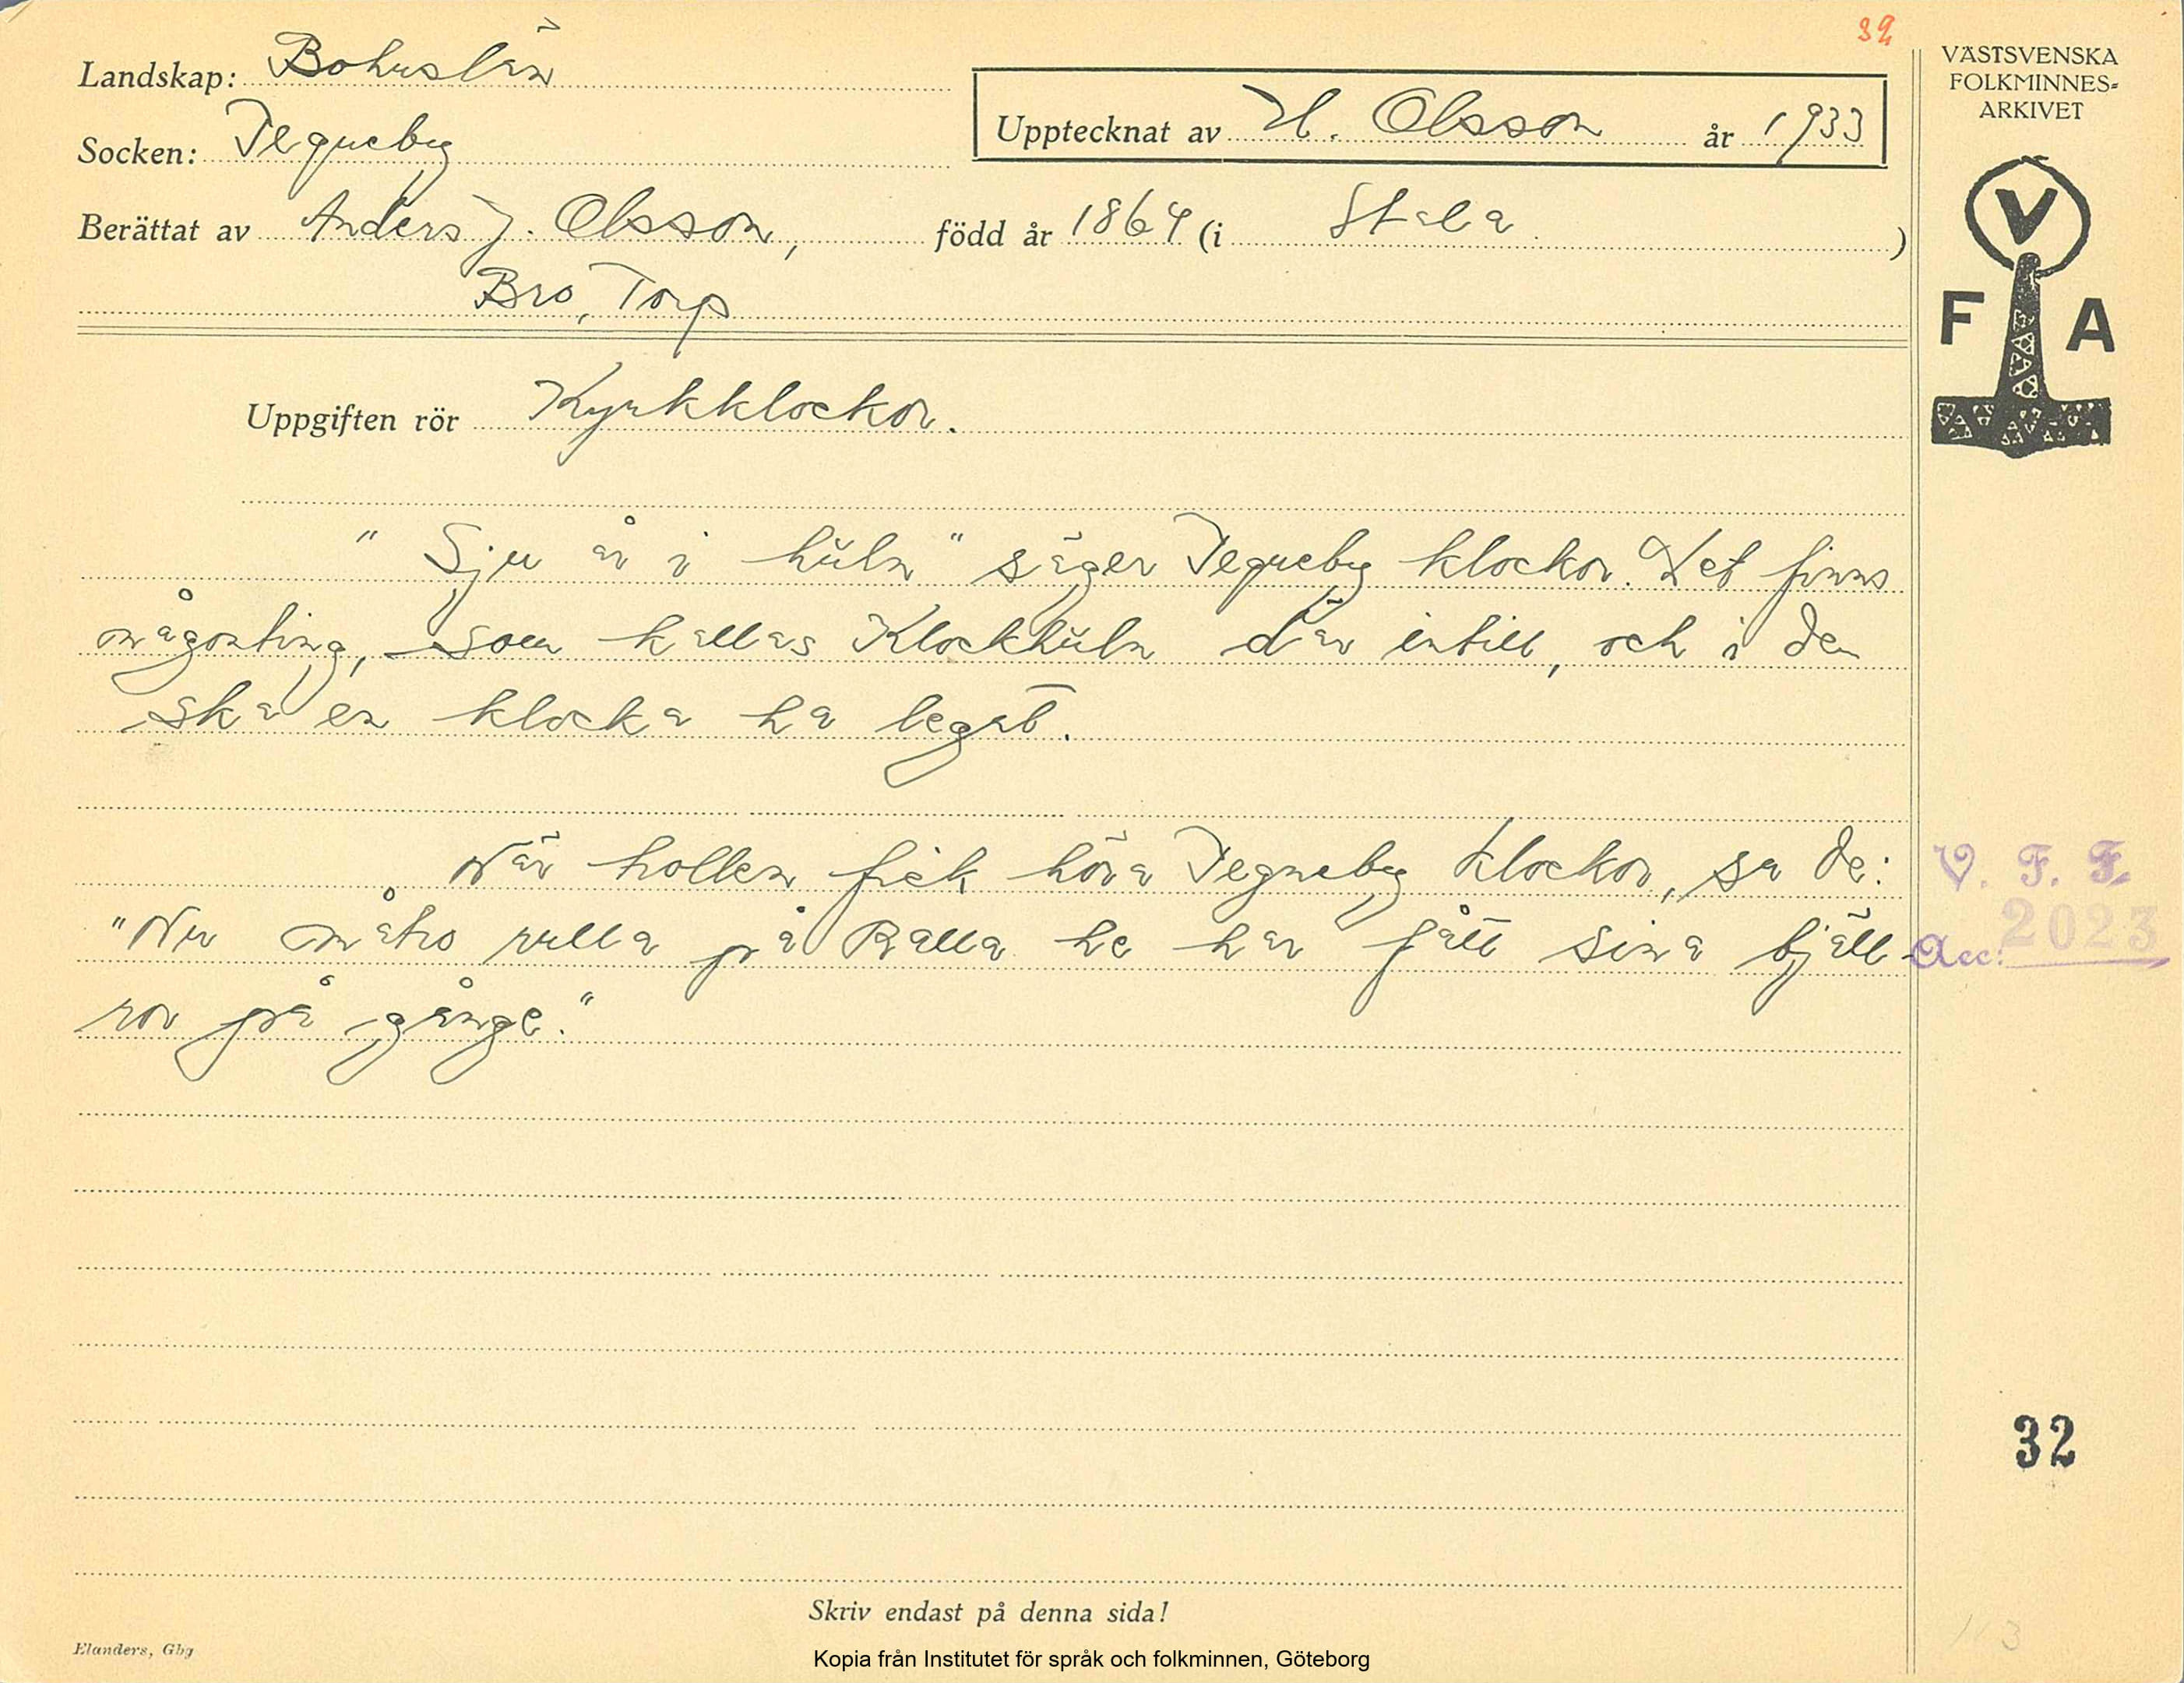 32
Landskap: Bohuslän
Socken: Tegneby
Upptecknat av H. Olsson år 1933
Berättat av Anders J. Olsson, född år 1864 (i Stala )
Bro, Torp
VÄSTSVENSKA
FOLKMINNES=
ARKIVET
V
F A
Uppgiften rör Kyrkklockor.
"Sju år i hŭln" säger Tegneby klockor. Det finns
någonting, som kallas Klockhŭln där intill, och i den
ska en klocka ha legat.
När trollen fick höra Tegneby klockor, sa de:
"Nu måtro rulla på Ralla he har fått sina bjäll-
ror på gånge."
V. F. F.
Acc: 2023
32
Skriv endast på denna sida!
Elanders, Gbg
Kopia från Institutet för språk och folkminnen, Göteborg